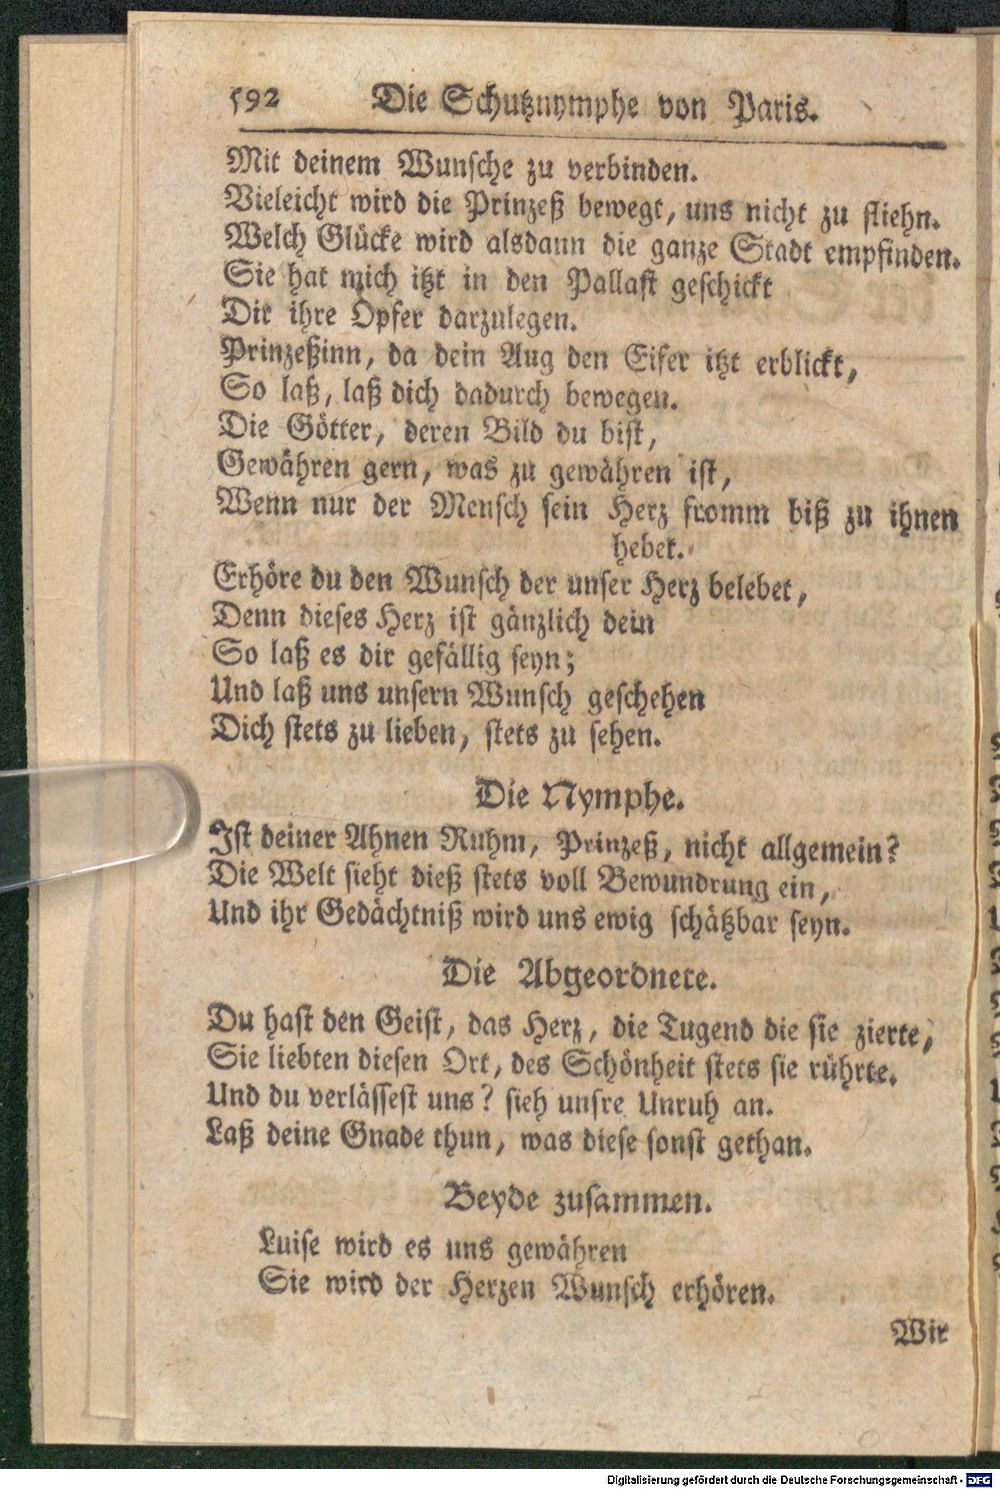 592 Die Schutznymphe von Paris.
Mit deinem Wunsche zu verbinden.
Vieleicht wird die Prinzeß bewegt, uns nicht zu fliehn.
Welch Glücke wird alsdann die ganze Stadt empfinden.
Sie hat mich itzt in den Pallast geschickt
Dir ihre Opfer darzulegen.
Prinzeßinn, da dein Aug den Eifer itzt erblickt,
So laß, laß dich dadurch bewegen.
Die Götter, deren Bild du bist,
Gewähren gern, was zu gewähren ist,
Wenn nur der Mensch sein Herz fromm biß zu ihnen
hebet.
Erhöre du den Wunsch der unser Herz belebet,
Denn dieses Herz ist gänzlich dein
So laß es dir gefällig seyn;
Und laß uns unsern Wunsch geschehen
Dich stets zu lieben, stets zu sehen.
Die Nymphe.
Ist deiner Ahnen Ruhm, Prinzeß, nicht allgemein?
Die Welt sieht dieß stets voll Bewundrung ein,
Und ihr Gedächtniß wird uns ewig schätzbar seyn.
Die Abgeordnete.
Du hast den Geist, das Herz, die Tugend die sie zierte,
Sie liebten diesen Ort, des Schönheit stets sie rührte.
Und du verlässest uns? sieh unsre Unruh an.
Laß deine Gnade thun, was diese sonst gethan.
Beyde zusammen.
Luise wird es uns gewähren
Sie wird der Herzen Wunsch erhören.
Wir
Digitalisierung gefördert durch die Deutsche Forschungsgemeinschaft - DFG